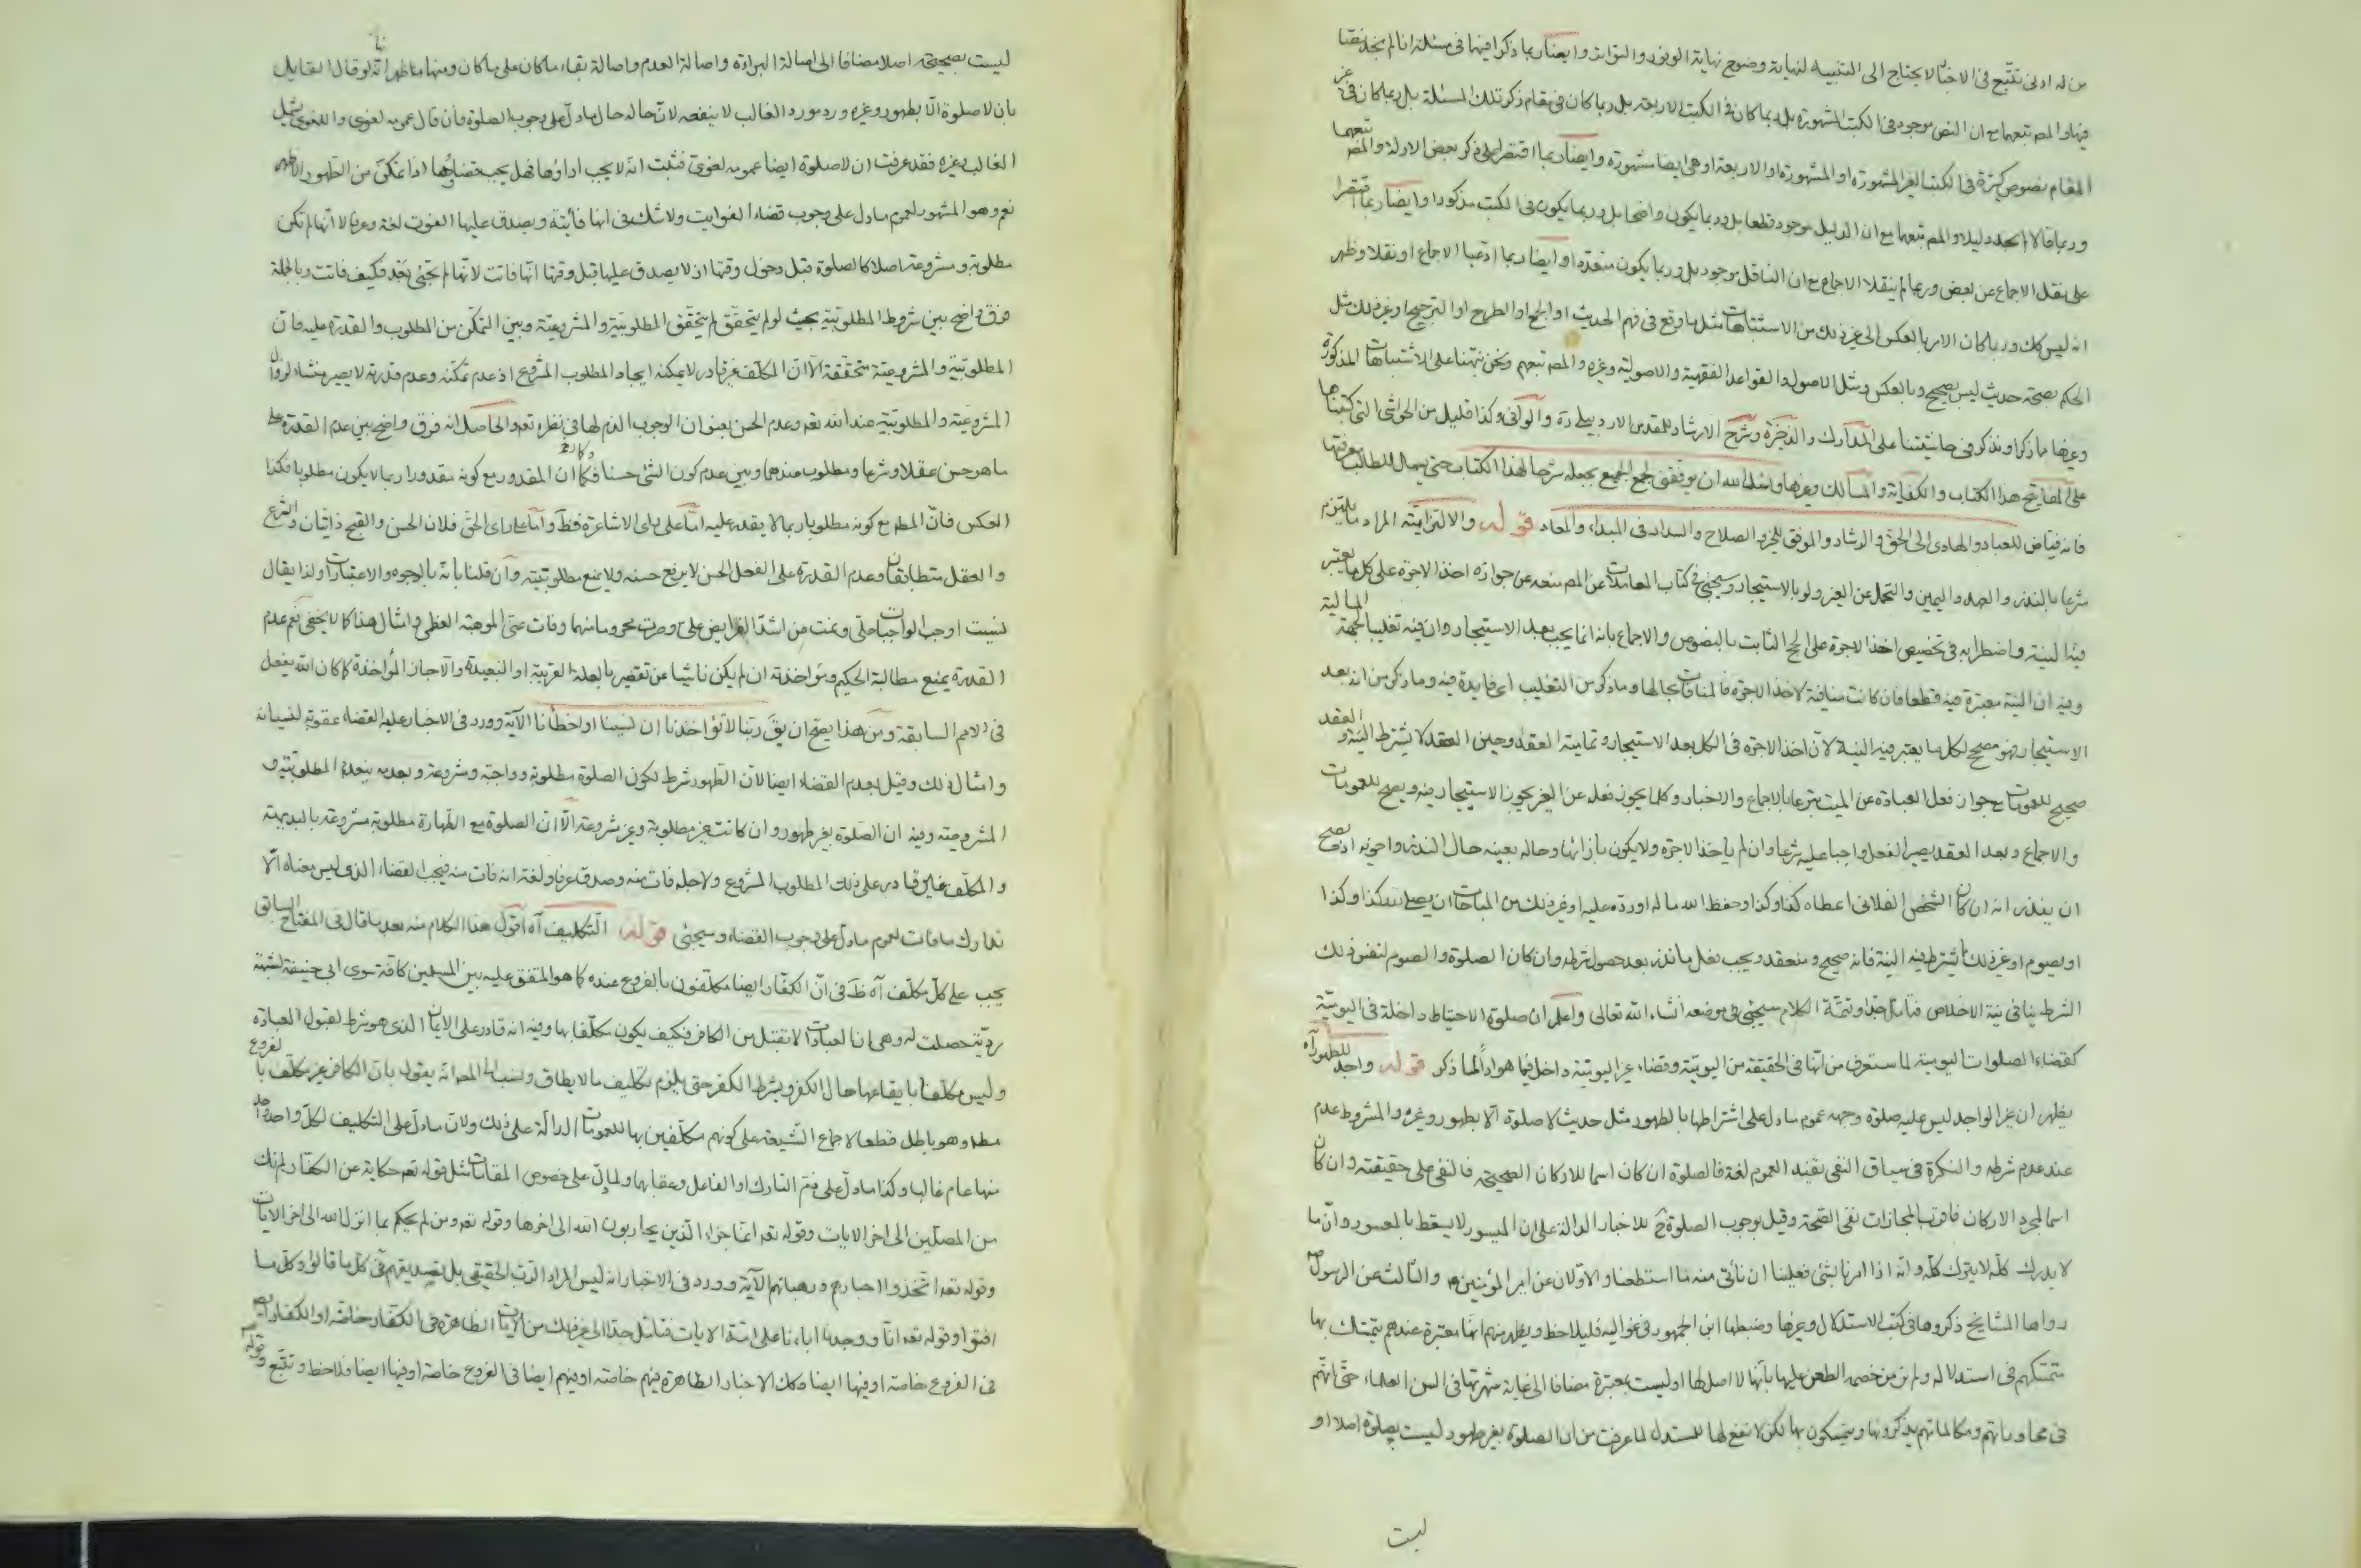 من له ادنى تتبّع فى الاخبار لا يحتاج الى التنبيه لنهاية وضوح نهاية الوفور والتواتر وايضا ربما ذكرا فيها فى مسئلة انا لم نجد نصّا
فيها والمص تبعهما مع ان النص موجود فى الكتب المشهورة بل ربما كان فى الكتب الاربعة بل ربما كان فى مقام ذكر تلك المسئلة بل ربما كان فى غير
المقام نصوص كثيرة فى الكتب الغير المشهورة او المشهورة او الاربعة او هى ايضا مشهورة وايضا ربما اقتصرا على ذكر بعض الادلة والمص تبعهما
وربما قالا لم نجد دليلا والمص تبعهما مع ان الدليل موجود قطعا بل وربما يكون واضحا بل وربما يكون فى الكتب مذكورا وايضا ربما اقتصرا
على نقل الاجماع عن بعض وربما لم ينقلا الاجماع مع ان الناقل موجود بل وربما يكون متعددا وايضا ربما ادعيا الاجماع او نقلا وظهر
انه ليس كك وربما كان الامر بالعكس الى غير ذلك من الاشتباهات مثل ما وقع فى فهم الحديث او الجمع او الطرح او الترجيح او غير ذلك مثل
الحكم بصحة حديث ليس بصحيح وبالعكس ومثل الاصول والقواعد الفقهية والاصولية وغيره والمص تبعهم ونحن نبّهنا على الاشتباهات المذكورة
وغيرها ما ذكر او نذكر فى حاشيتنا على المدارك والذخيرة وشرح الارشاد للمقدس الاردبيلى ره والوافى وكذا قليل من الحواشى التى كتبناها
على المفاتيح هذا الكتاب والكفاية والمسالك وغيرها واسئل الله ان يوفقنى لجمع الجميع بجعله شرحا لهذا الكتاب حتى يسهل للطالب معرفتها
فانه فياض للعباد والهادى الى الحق والرشاد والموفق للخير والصلاح والسداد فى المبداء والمعاد قوله والالتزاميّة المراد ما يلتزم
شرعا بالنذر والعهد واليمين والتحمل عن الغير ولو بالاستيجار وسيجئ فى كتاب المعاملات عن المص منعه عن جواز اخذ الاجرة على كل ما يعتبر
فيه النية واضطرابه فى تخصيص اخذ الاجرة على الحج الثابت بالنصوص والاجماع بانه انما يجب بعد الاستيجار وان فيه تغليبا لجهة المالية
وفيه ان النية معتبرة فيه قطعا فان كانت منافية لاخذ الاجرة فالمنافات بحالها وما ذكر من التغليب اى فايدة فيه وما ذكر من انه بعد
الاستيجار فهو مصحح لكل ما يعتبر فيه النية لان اخذ الاجرة فى الكل بعد الاستيجار وتمامية العقد وحين العقد لا يشترط النية والعقد
صحيح للعمومات مع جواز فعل العبادة عن الميت تبرعا بالاجماع والاخبار وكلما يجوز فعله عن الغير يجوز الاستيجار فيه ويصح للعمومات
والاجماع وبعد العقد يصير الفعل واجبا عليه شرعا وان لم ياخذ الاجرة ولا يكون بازائها وحاله بعينه حال النذر واخويه اذ يصح
ان ينذر انه ان كان الشخص الفلانى اعطاه كذا وكذا وحفظ الله ماله او رده عليه او غير ذلك من المباحات ان يصلى لله كذا وكذا
او يصوم او غير ذلك مما يشترط فيه النية فانه صحيح ومنعقد ويجب فعل ما نذر بعد حصول شرطه وان كان الصلوة والصوم لنفس ذلك
الشرط ينافى نية الاخلاص فتامل جدا وتتمّة الكلام سيجئ فى موضعه انشاء الله تعالى واعلم ان صلوة الاحتياط داخلة فى اليوميّة
كقضاء الصلوات اليومية لما ستعرف من انّها فى الحقيقة من اليوميّة وقضاء غير اليوميّة داخل فيما هو اداء لما ذكر قوله واجد للطهور آه
يظهر ان غير الواجد ليس عليه صلوة وجهه عموم ما دل على اشتراطها بالطهور مثل حديث لا صلوة الا بطهور وغيره والمشروط عدم
عند عدم شرطه والنكرة فى سياق النفى يفيد العموم لغة فالصلوة ان كان اسما للاركان الصحيحة فالنفى على حقيقته وان كان
اسما لمجرد الاركان فاقرب المجازات نفى الصحّة وقيل بوجوب الصلوة ح للاخبار الدالة على ان الميسور لا يسقط بالمعسور وانّ ما
لا يدرك كلّه لا يترك كلّه وانه اذا امرنا بشئ فعلينا ان نأتى منه ما استطعنا والاوّلان عن امير المؤمنين ع والثالث عن الرسول ص
رواها المشايخ ذكروها فى كتب الاستدلال وغيرها وضبطها ابن الجمهور فى غواليه فليلاحظ ويظهر منهم انها معتبرة عندهم يتمسّك بها
متمسّكهم فى استدلاله ولم نر من خصمه الطعن عليها بأنها لا اصل لها او ليست بمعتبرة مضافا الى غاية شهرتها فى السن العلماء حتّى انّهم
فى محاوراتهم ومكالماتهم يذكرونها ويتمسكون بها لكن لا نفع لها للمستدل لما عرفت من ان الصلوة بغير طهور ليست بصلوة اصلا او
ليست
ليست بصحيحة اصلا مضافا الى اصالة البراءة واصالة العدم واصالة بقاء ما كان على ما كان ومنها ما ظهر انّه لو قال القايل
بان لا صلوة الّا بطهور وغيره ورد مورد الغالب لا ينفعه لانّ حاله حال ما دلّ على وجوب الصلوة فان قال عمومه لغوى واللغوى يشمل
الغالب وغيره فقد عرفت ان لا صلوة ايضا عمومه لغوى فثبت انه لا يجب اداؤها فهل يجب قضاؤها اذا تمكّن من الطّهور الاظهر
نعم وهو المشهور لعموم ما دل على وجوب قضاء الفوايت ولا شك فى انها فائتة ويصدق عليها الفوت لغة وعرفا لا انّها لم تكن
مطلوبة ومشروعة اصلا كالصلوة قبل دخول وقتها ان لا يصدق عليها قبل وقتها انّها فاتت لانّها لم تجئ بعد فكيف فاتت وبالجملة
فرق واضح بين شروط المطلوبية بحيث لو لم يتحقّق لم يتحقق المطلوبيّة والمشروعيّة وبين التمكّن من المطلوب والقدرة عليه فان
المطلوبيّة والمشروعيّة متحققة الّا انّ المكلّف غير قادر لا يمكنه ايجاد المطلوب المشروع اذ عدم تمكّنه وعدم قدرته لا يصير منشاء لزوال
المشروعيّة والمطلوبيّة عند الله تعه وعدم الحسن بعنوان الوجوب اللازم لها فى نظره تعه والحاصل انه فرق واضح بين عدم القدرة على
ما هو حسن عقلا وشرعا ومطلوب عندهما وبين عدم كون الشئ حسنا فكما ان المقدور مع كونه مقدورا ربما لا يكون مطلوبا فكذا
العكس فانّ المطم مع كونه مطلوبا ربما لا يقدر عليه امّا على راى الاشاعرة فظّ وامّا على راى الحقّ فلان الحسن والقبح ذاتيان والشرع
والعقل متطابقان وعدم القدرة على الفعل الحسن لا يرفع حسنه ولا يمنع مطلوبيّته وان قلنا بانّه بالوجوه والاعتبارات ولذا يقال
نسيت اوجب الواجبات علىّ ونمت من اشدّ الفرايض علىّ وصرت محروما منهما وفات عنّى الموهبة العظمى وامثال هذا كما لا يخفى نعم عدم
القدرة يمنع مطالبة الحكيم ومؤاخذته ان لم يكن ناشيا عن تقصير بالعلة القريبة او البعيدة والا جاز المؤاخذة كما كان الله يفعل
فى الامم السابقة ومن هذا يصح ان يقّ ربّنا لا تؤاخذنا ان نسينا او اخطأنا الآية وورد فى الاخبار عليه القضاء عقوبة لنسيانه
وامثال ذلك وقيل بعدم القضاء ايضا لانّ الطّهور شرط لكون الصلوة مطلوبة وواجبة ومشروعة وبعدمه ينعدم المطلوبيّة و
المشروعيّة وفيه ان الصّلوة بغير طهور وان كانت غير مطلوبة وغير مشروعة الّا انّ الصلوة مع الطّهارة مطلوبة مشروعة بالبديهة
والمكلّف غير قادر على ذلك المطلوب المشروع ولاجله فات منه وصدق عرفا ولغة انه فات منه فيجب القضاء الذى ليس معناه الّا
تدارك ما فات لعموم ما دلّ على وجوب القضاء وسيجئى قوله التّكليف آه اقول هذا الكلام منه بعد ما قال فى المفتاح السابق
يجب على كلّ مكلّف آه ظّ فى انّ الكفّار ايضا مكلّفون بالفروع عنده كما هو المتفق عليه بين المسلمين كافّة سوى ابى حنيفة لشبهة
رديّة حصلت له وهى ان العبادات لا تقبل من الكافر فكيف يكون مكلّفا بها وفيه انه قادر على الايمان الذى هو شرط لقبول العبادة
وليس مكلّفا بايقاعها حال الكفر وبشرط الكفر حتى يلزم تكليف ما لا يطاق ونسب الى المص انّه يقول بانّ الكافر غير مكلّف بالفروع
مطم وهو باطل قطعا لاجماع الشّيعة على كونهم مكلّفين بها للعمومات الدالّة على ذلك ولانّ ما دلّ على التكليف لكلّ واحد واحد
منها عام غالبا وكذا ما دلّ على ذمّ التارك او الفاعل وعقابها ولما دلّ على خصوص المقامات مثل قوله تعه حكاية عن الكفّار لم نك
من المصلّين الى اخر الايات وقوله تعه انما جزاء الّذين يحاربون الله الى اخرها وقوله تعه ومن لم يحكم بما انزل الله الى اخر الايات
وقوله تعه اتّخذوا احبارهم ورهبانهم الآية وورد فى الاخبار انه ليس المراد الربّ الحقيقى بل تصديقهم فى كلّ ما قالوا وكلّ ما
افتوا وقوله تعه انّا وجدنا اباءنا على امّة الايات فتامّل جدّا الى غير ذلك من الآيات الظاهرة فى الكفّار خاصّة او الكفّار ايضا
فى الفروع خاصّة او فيها ايضا وكك الاخبار الظاهرة فيهم خاصّة او فيهم ايضا فى الفروع خاصّة او فيها ايضا فلاحظ وتتبّع وقوله